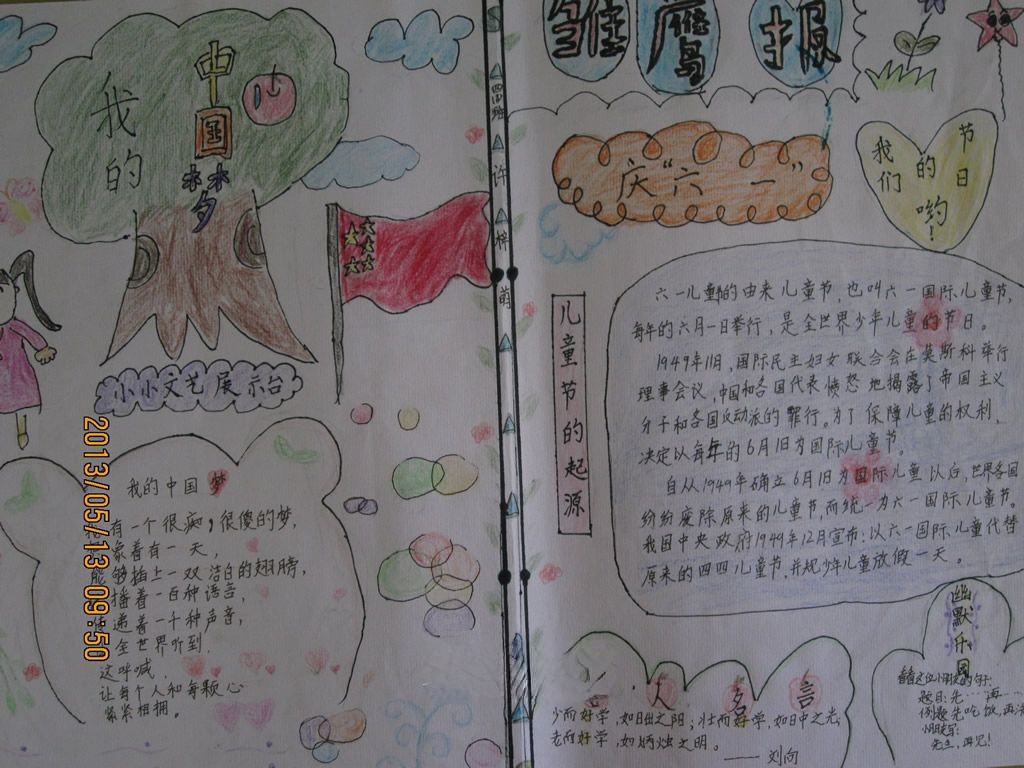 我的
中国梦
小小文艺展示台
我的中国梦
有一个很痴,很傻的梦,
着有一天,
能够插上一双洁白的翅膀,
播着一百种语言,
递着一千种声音,
全世界听到,
这呼喊,
让每个人和每颗心
紧紧相拥。
2013/05/13 09:50
许梓萌
雏鹰报
庆“六一”
我们的节日哟!
儿童节的起源
六一儿童的由来儿童节,也叫六一国际儿童节,
每年的六月一日举行,是全世界少年儿童的节日。
1949年11月,国际民主妇女联合会在莫斯科举行
理事会议,中国和各国代表愤怒地揭露了帝国主义
分子和各国反动派的罪行。为了保障儿童的权利,
决定以每年的6月1日为国际儿童节。
自从1949年确立6月1日为国际儿童以后,世界各国
纷纷废除原来的儿童节,而统一为六一国际儿童节。
我国中央政府1949年12月宣布:以六一国际儿童代替
原来的四四儿童节,并规少年儿童放假一天。
人名言
少而好学,如日出之阳;壮而好学,如日中之光;
老而好学,如炳烛之明。
——刘向
幽默乐园
题目:先……再……
例题:先吃饭,再
先生,再见!